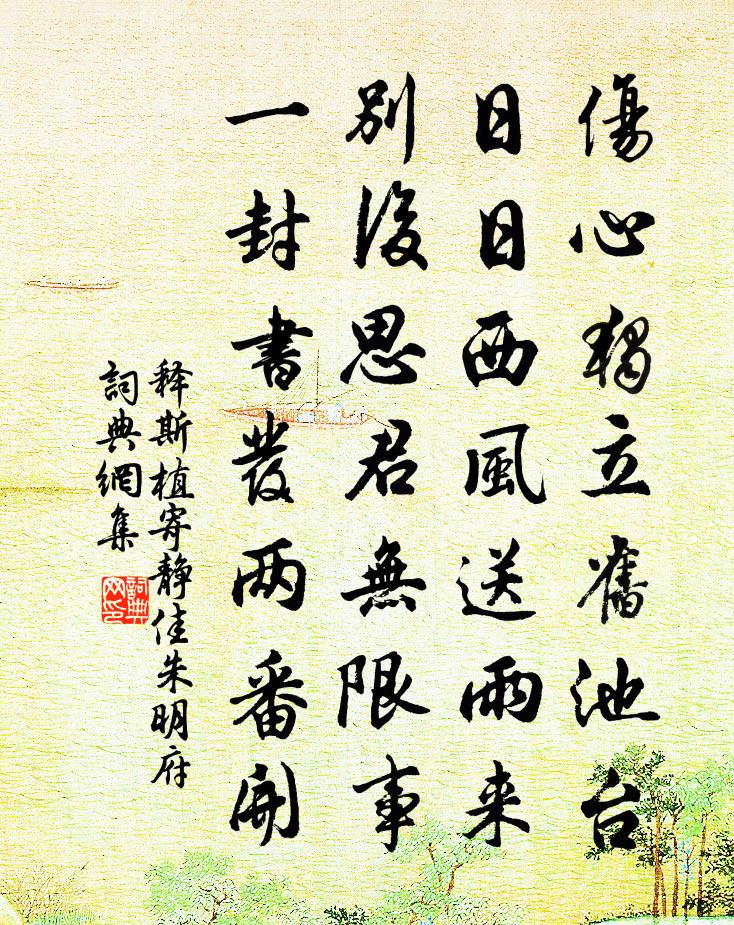 傷心獨立舊池台
日日西風送雨来
別後思君無限事
一封書發两番開
释斯植寄静佳朱明府
詞典網集
詞典网印